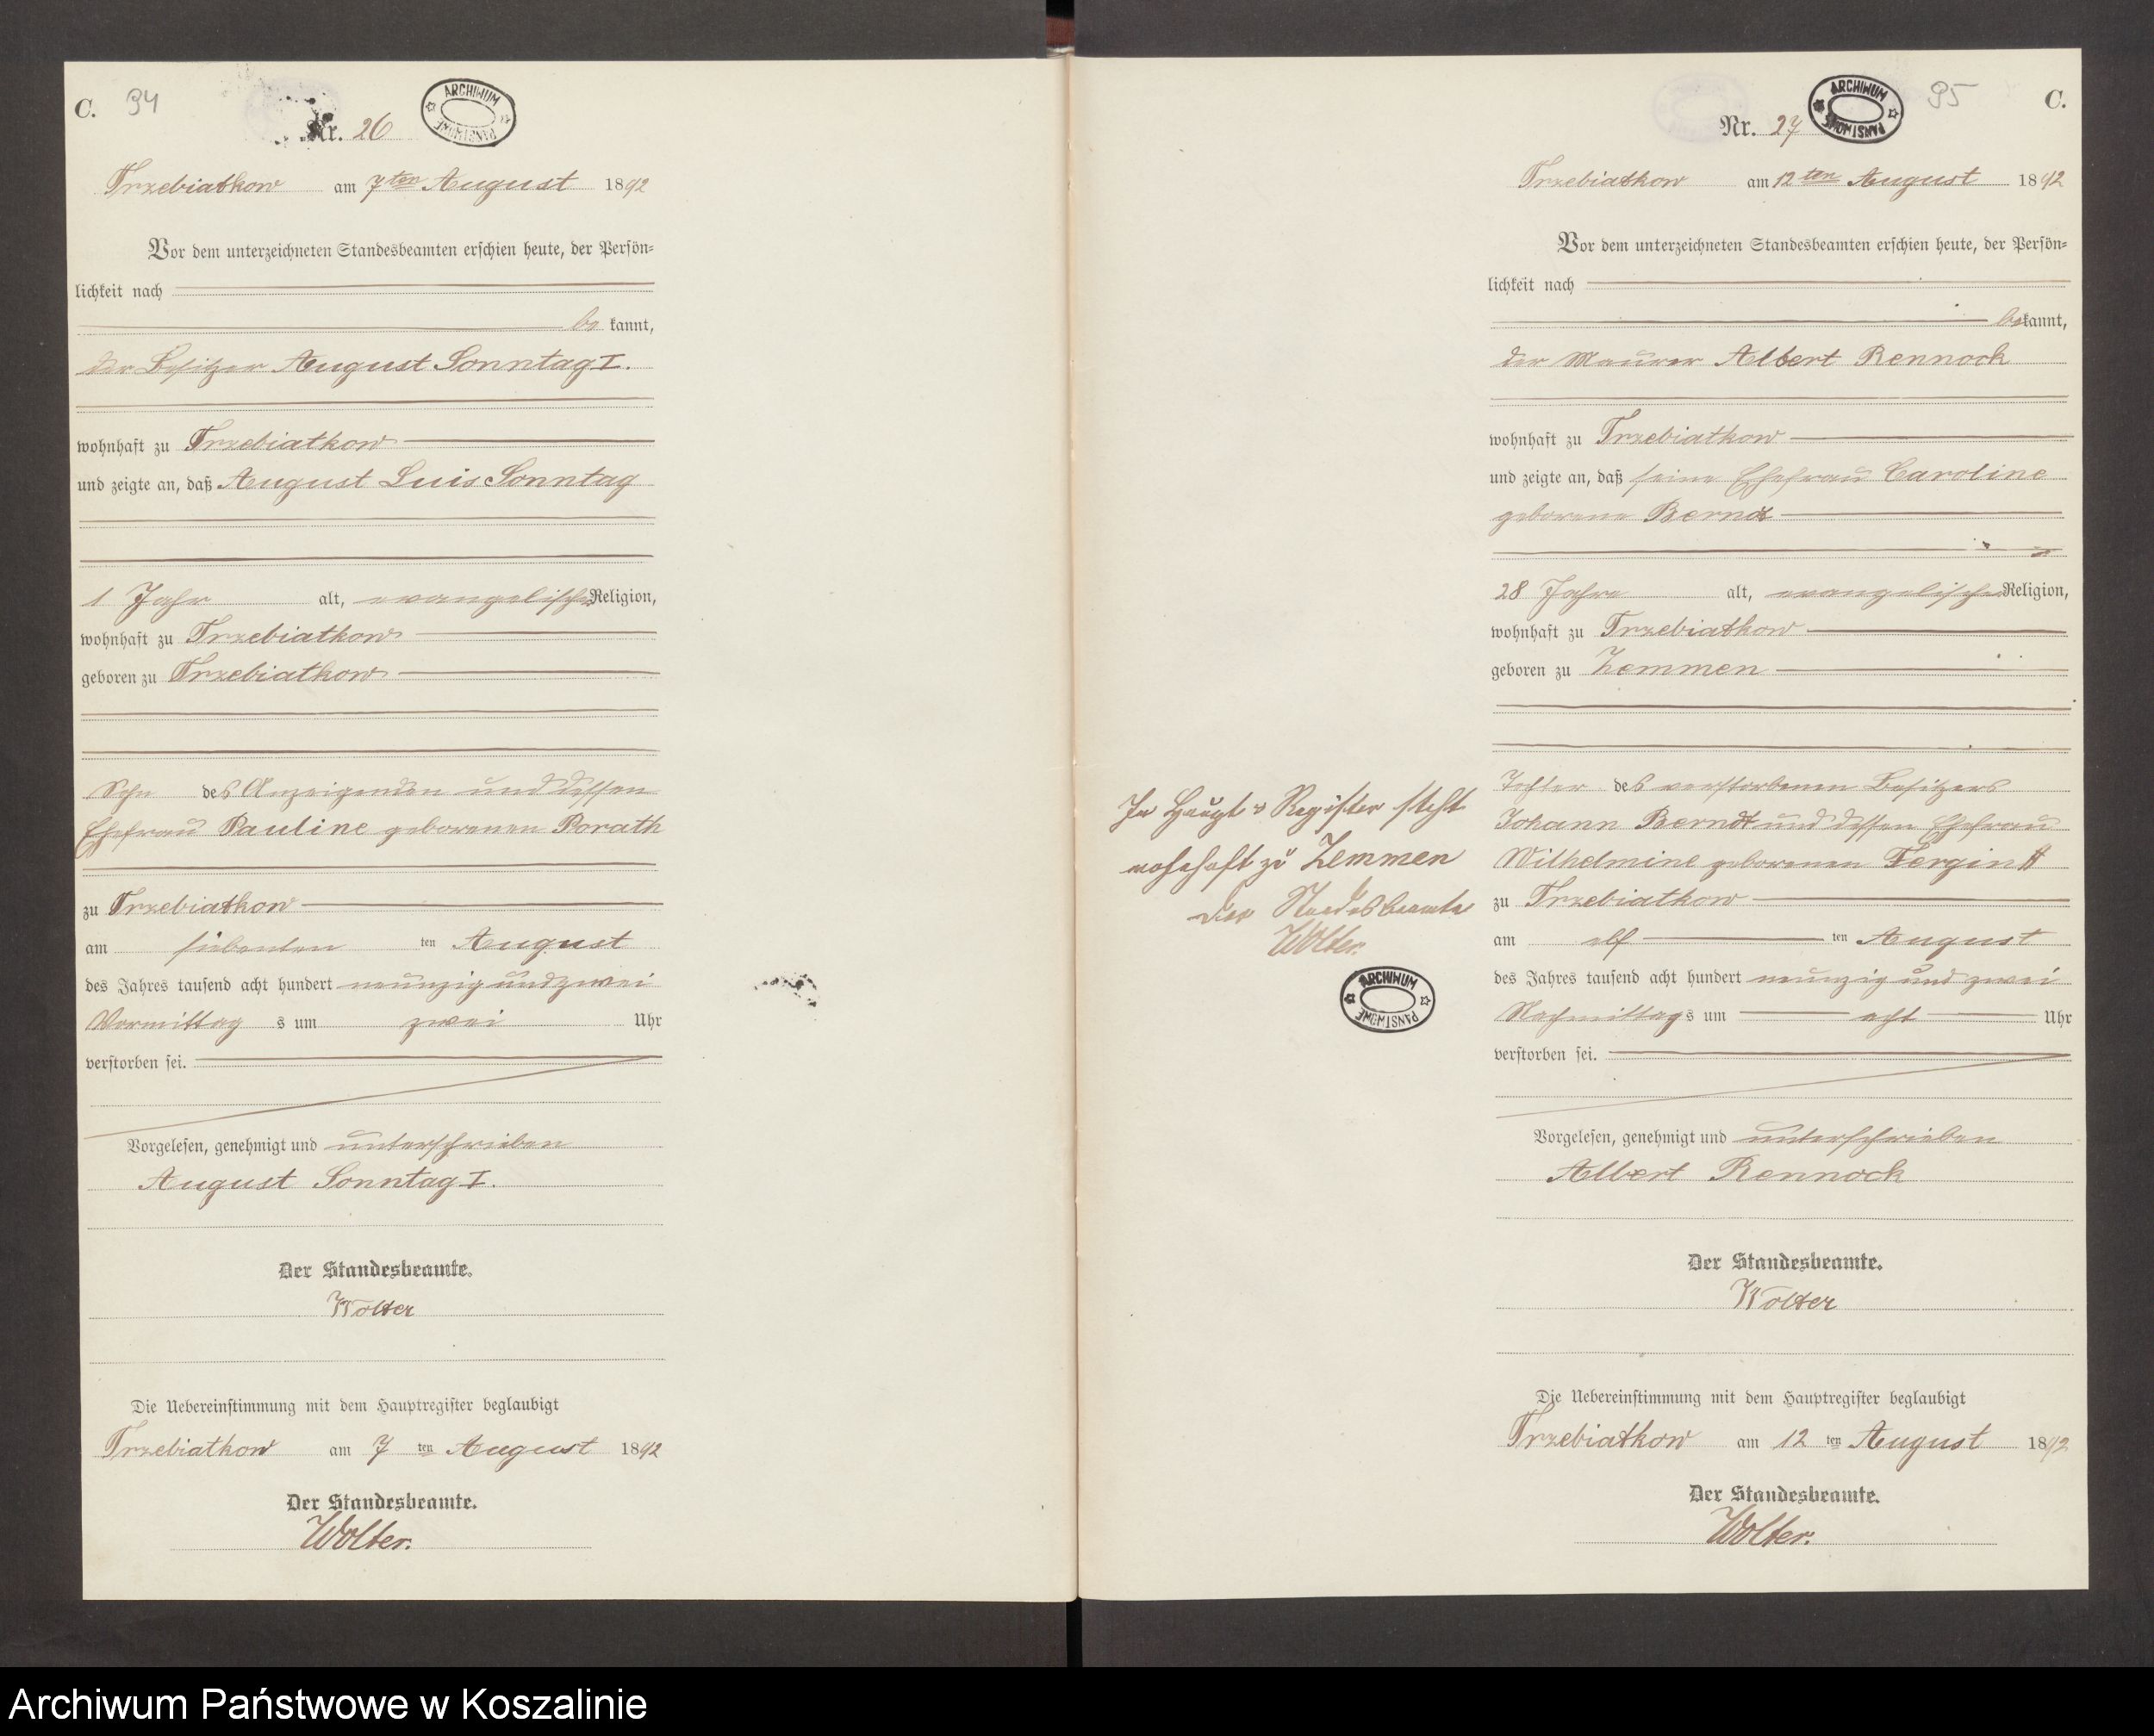 C. 94
Nr. 26
ARCHIWUM PAŃSTWOWE
Trzebiatkow am 7ten August 1892
Vor dem unterzeichneten Standesbeamten erschien heute, der Persön-
lichkeit nach
be kannt,
der Besitzer August Sonntag I.
wohnhaft zu Trzebiatkow
und zeigte an, daß August Luis Sonntag
1 Jahr alt, evangelischer Religion,
wohnhaft zu Trzebiatkow
geboren zu Trzebiatkow
Sohn des Anzeigenden und dessen
Ehefrau Pauline geborenen Porath
zu Trzebiatkow
am siebenten ten August
des Jahres tausend acht hundert neunzig und zwei
Vormittag s um zwei Uhr
verstorben sei.
Vorgelesen, genehmigt und unterschrieben
August Sonntag I.
Der Standesbeamte.
Wolter
Die Uebereinstimmung mit dem Hauptregister beglaubigt
Trzebiatkow am 7 ten August 1892
Der Standesbeamte.
Wolter.
95 C.
Nr. 27
ARCHIWUM PAŃSTWOWE
Trzebiatkow am 12ten August 1892
Vor dem unterzeichneten Standesbeamten erschien heute, der Persön-
lichkeit nach
bekannt,
der Maurer Albert Rennock
wohnhaft zu Trzebiatkow
und zeigte an, daß seine Ehefrau Caroline
geborene Berndt
28 Jahre alt, evangelischer Religion,
wohnhaft zu Trzebiatkow
geboren zu Zemmen
Tochter des verstorbenen Besitzers
Johann Berndt und dessen Ehefrau
Wilhelmine geborenen
zu Trzebiatkow
am elf ten August
des Jahres tausend acht hundert neunzig und zwei
Nachmittag s um acht Uhr
verstorben sei.
Vorgelesen, genehmigt und unterschrieben
Albert Rennock
Der Standesbeamte.
Wolter
Die Uebereinstimmung mit dem Hauptregister beglaubigt
Trzebiatkow am 12 ten August 1892
Der Standesbeamte.
Wolter.
Im Haupt-Register steht
wohnhaft zu Zemmen
Der Standesbeamte
Wolter.
ARCHIWUM PAŃSTWOWE
Archiwum Państwowe w Koszalinie